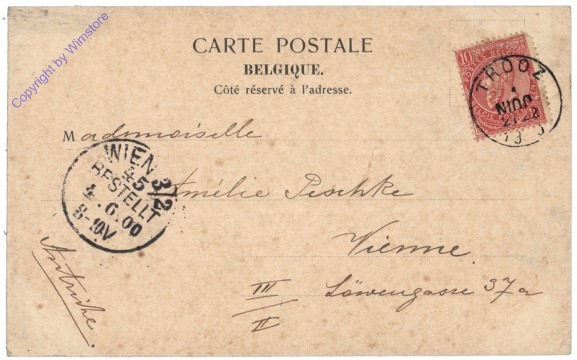 Copyright by Wimstore
CARTE POSTALE
BELGIQUE.
Côté réservé à l'adresse.
10
TROOZ
JUIN
Mademoiselle
WIEN 3/2
45
BESTELLT
4.6.00
8-10V
Amélie Peschke
Vienne.
III
II
Löwengasse 37a
Autriche.